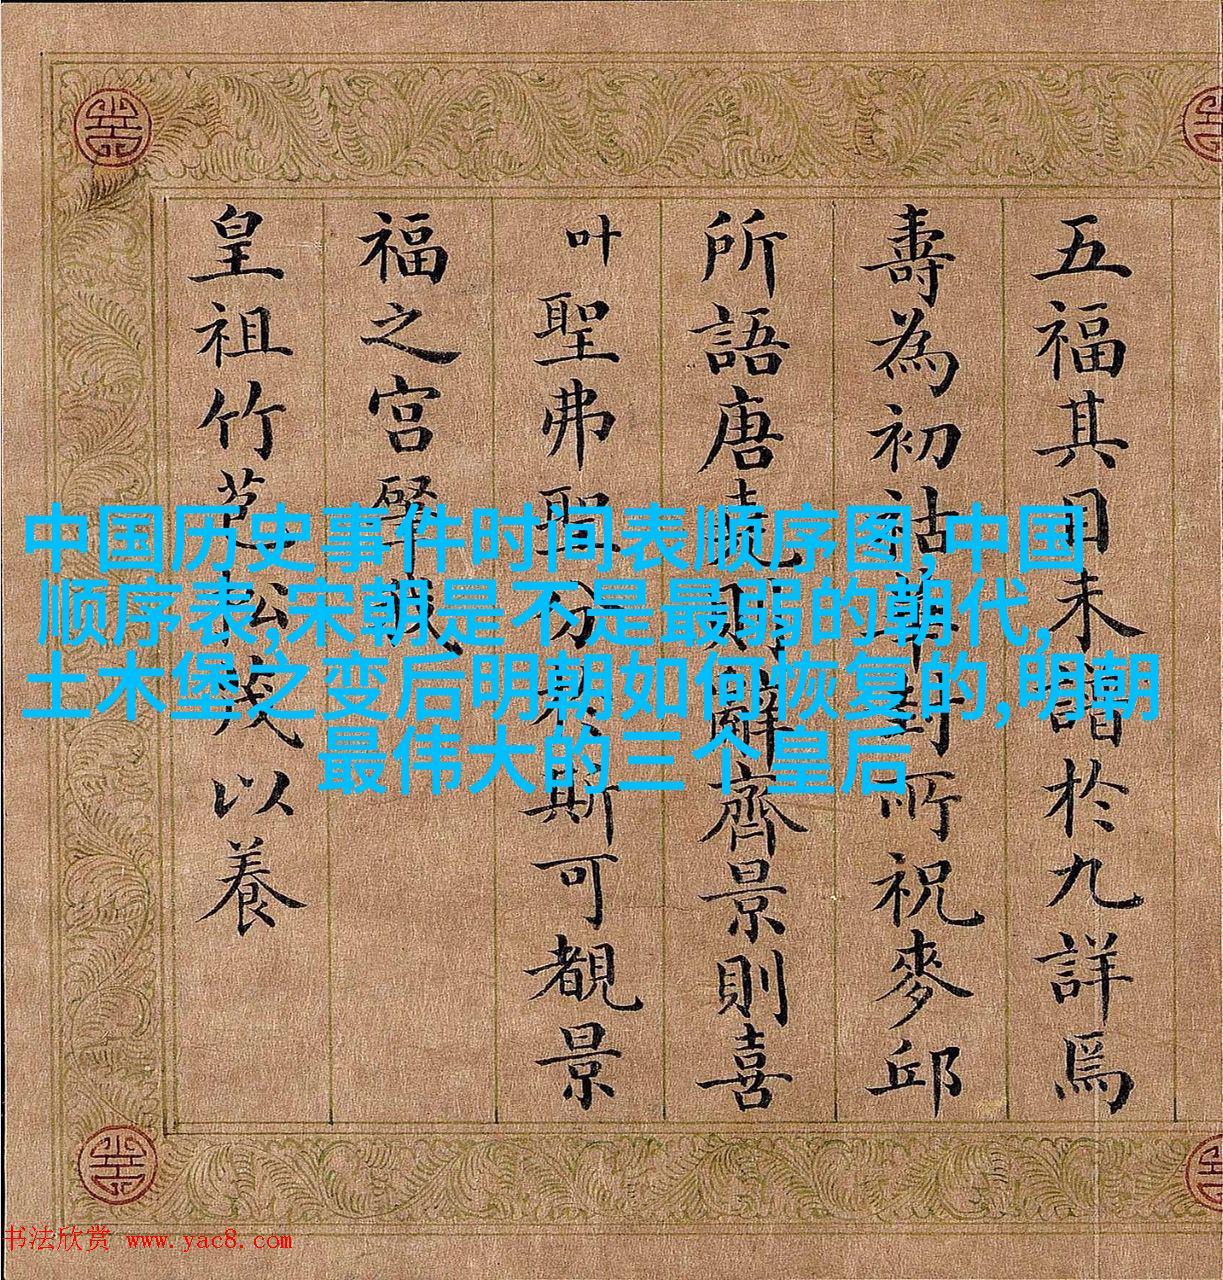 五福其曰未詣於九詳焉
壽為初祜華封所祝麥邱
所語唐堯則辭齊景則喜
叶聖弗聖分於斯可覩景
福之宮肇成
皇祖竹苞松茂以養
中国历史事件时间表顺序图,中国
顺序表,宋朝是不是最弱的朝代,
土木堡之变后明朝如何恢复的,明朝
最伟大的三个皇后
书法欣赏 www.yac8.com